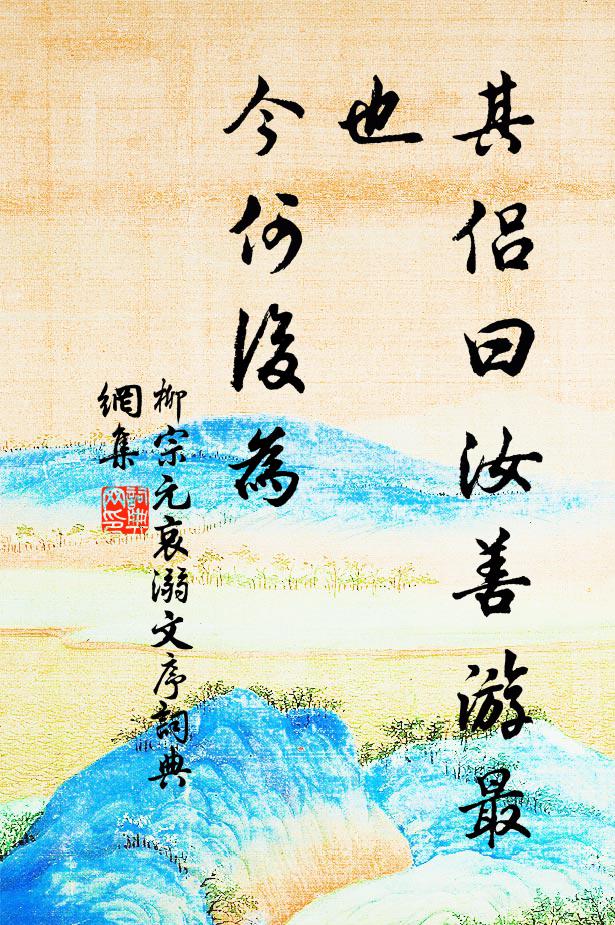 其侣曰汝善游最
也
今何後為
柳宗元哀溺文序詞典
網集
詞典